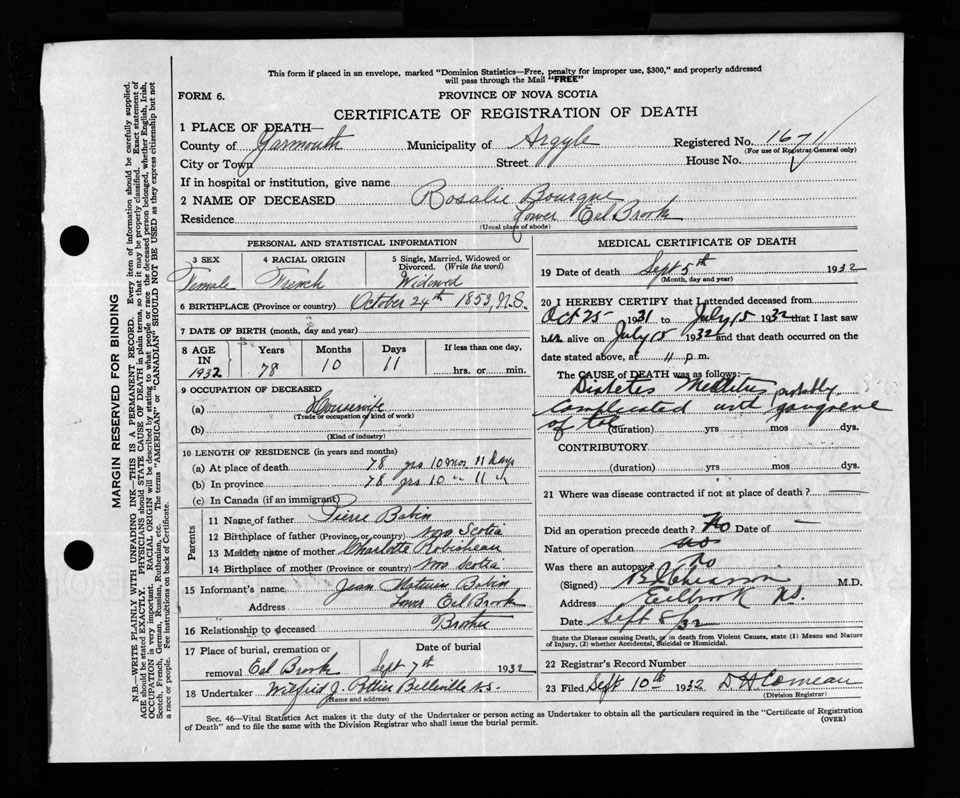 This form if placed in an envelope, marked "Dominion Statistics—Free, penalty for improper use, $300," and properly addressed
will pass through the Mail "FREE"
FORM 6.
PROVINCE OF NOVA SCOTIA
CERTIFICATE OF REGISTRATION OF DEATH
1 PLACE OF DEATH—
County of Yarmouth Municipality of Argyle Registered No. 1671
(For use of Registrar General only)
City or Town Street House No.
If in hospital or institution, give name
2 NAME OF DECEASED Rosalie Bourque
Residence Lower Eel Brook
(Usual place of abode)
PERSONAL AND STATISTICAL INFORMATION
3 SEX 4 RACIAL ORIGIN 5 Single, Married, Widowed or
Divorced. (Write the word)
Female French Widowed
6 BIRTHPLACE (Province or country) October 24th 1853, N.S.
7 DATE OF BIRTH (month, day and year)
8 AGE IN 1932 Years Months Days If less than one day,
78 10 11 hrs. or min.
9 OCCUPATION OF DECEASED
(a) Housewife
(Trade or occupation or kind of work)
(b)
(Kind of industry)
10 LENGTH OF RESIDENCE (in years and months)
(a) At place of death 78 yrs 10 mos 11 days
(b) In province 78 yrs 10 " 11 "
(c) In Canada (if an immigrant)
Parents
11 Name of father Pierre Babin
12 Birthplace of father (Province or country) Nova Scotia
13 Maiden name of mother Charlotte Robicheau
14 Birthplace of mother (Province or country) Nova Scotia
15 Informant's name Jean Maturin Babin
Address Lower Eel Brook
16 Relationship to deceased Brother
17 Place of burial, cremation or Date of burial
removal Eel Brook Sept 7th 1932
18 Undertaker Wilfred J. Pottier Belleville N.S.
(Name and address)
MEDICAL CERTIFICATE OF DEATH
19 Date of death Sept 5th 1932
(Month, day and year)
20 I HEREBY CERTIFY that I attended deceased from
Oct 25 1931 to July 15 1932 that I last saw
her alive on July 15 1932 and that death occurred on the
date stated above, at 11 p.m.
The CAUSE of DEATH was as follows:
Diabetes Mellitus probably
complicated with gangrene
of toe
(duration) yrs mos dys.
CONTRIBUTORY
(duration) yrs mos dys.
21 Where was disease contracted if not at place of death? —
Did an operation precede death? No Date of —
Nature of operation no
Was there an autopsy? no
(Signed) M.D.
Address Eelbrook N.S.
Date Sept 8/32
State the Disease causing Death, or in death from Violent Causes, state (1) Means and Nature
of Injury, (2) whether Accidental, Suicidal or Homicidal.
22 Registrar's Record Number
23 Filed Sept 10th 1932 D H Comeau
(Division Registrar)
Sec. 46—Vital Statistics Act makes it the duty of the Undertaker or person acting as Undertaker to obtain all the particulars required in the "Certificate of Registration
of Death" and to file the same with the Division Registrar who shall issue the burial permit. (OVER)
MARGIN RESERVED FOR BINDING
N.B.—WRITE PLAINLY WITH UNFADING INK—THIS IS A PERMANENT RECORD. Every item of information should be carefully supplied.
AGE should be stated EXACTLY. PHYSICIANS should STATE CAUSE OF DEATH in plain terms, so that it may be properly classified. Exact statement of
OCCUPATION is very important. RACIAL ORIGIN will be described by stating to what people or race the deceased person belonged, whether English, Irish,
Scotch, French, German, Russian, Ruthenian, etc. The terms "AMERICAN" or "CANADIAN" SHOULD NOT BE USED as they express citizenship but not
a race or people. See instructions on back of Certificate.